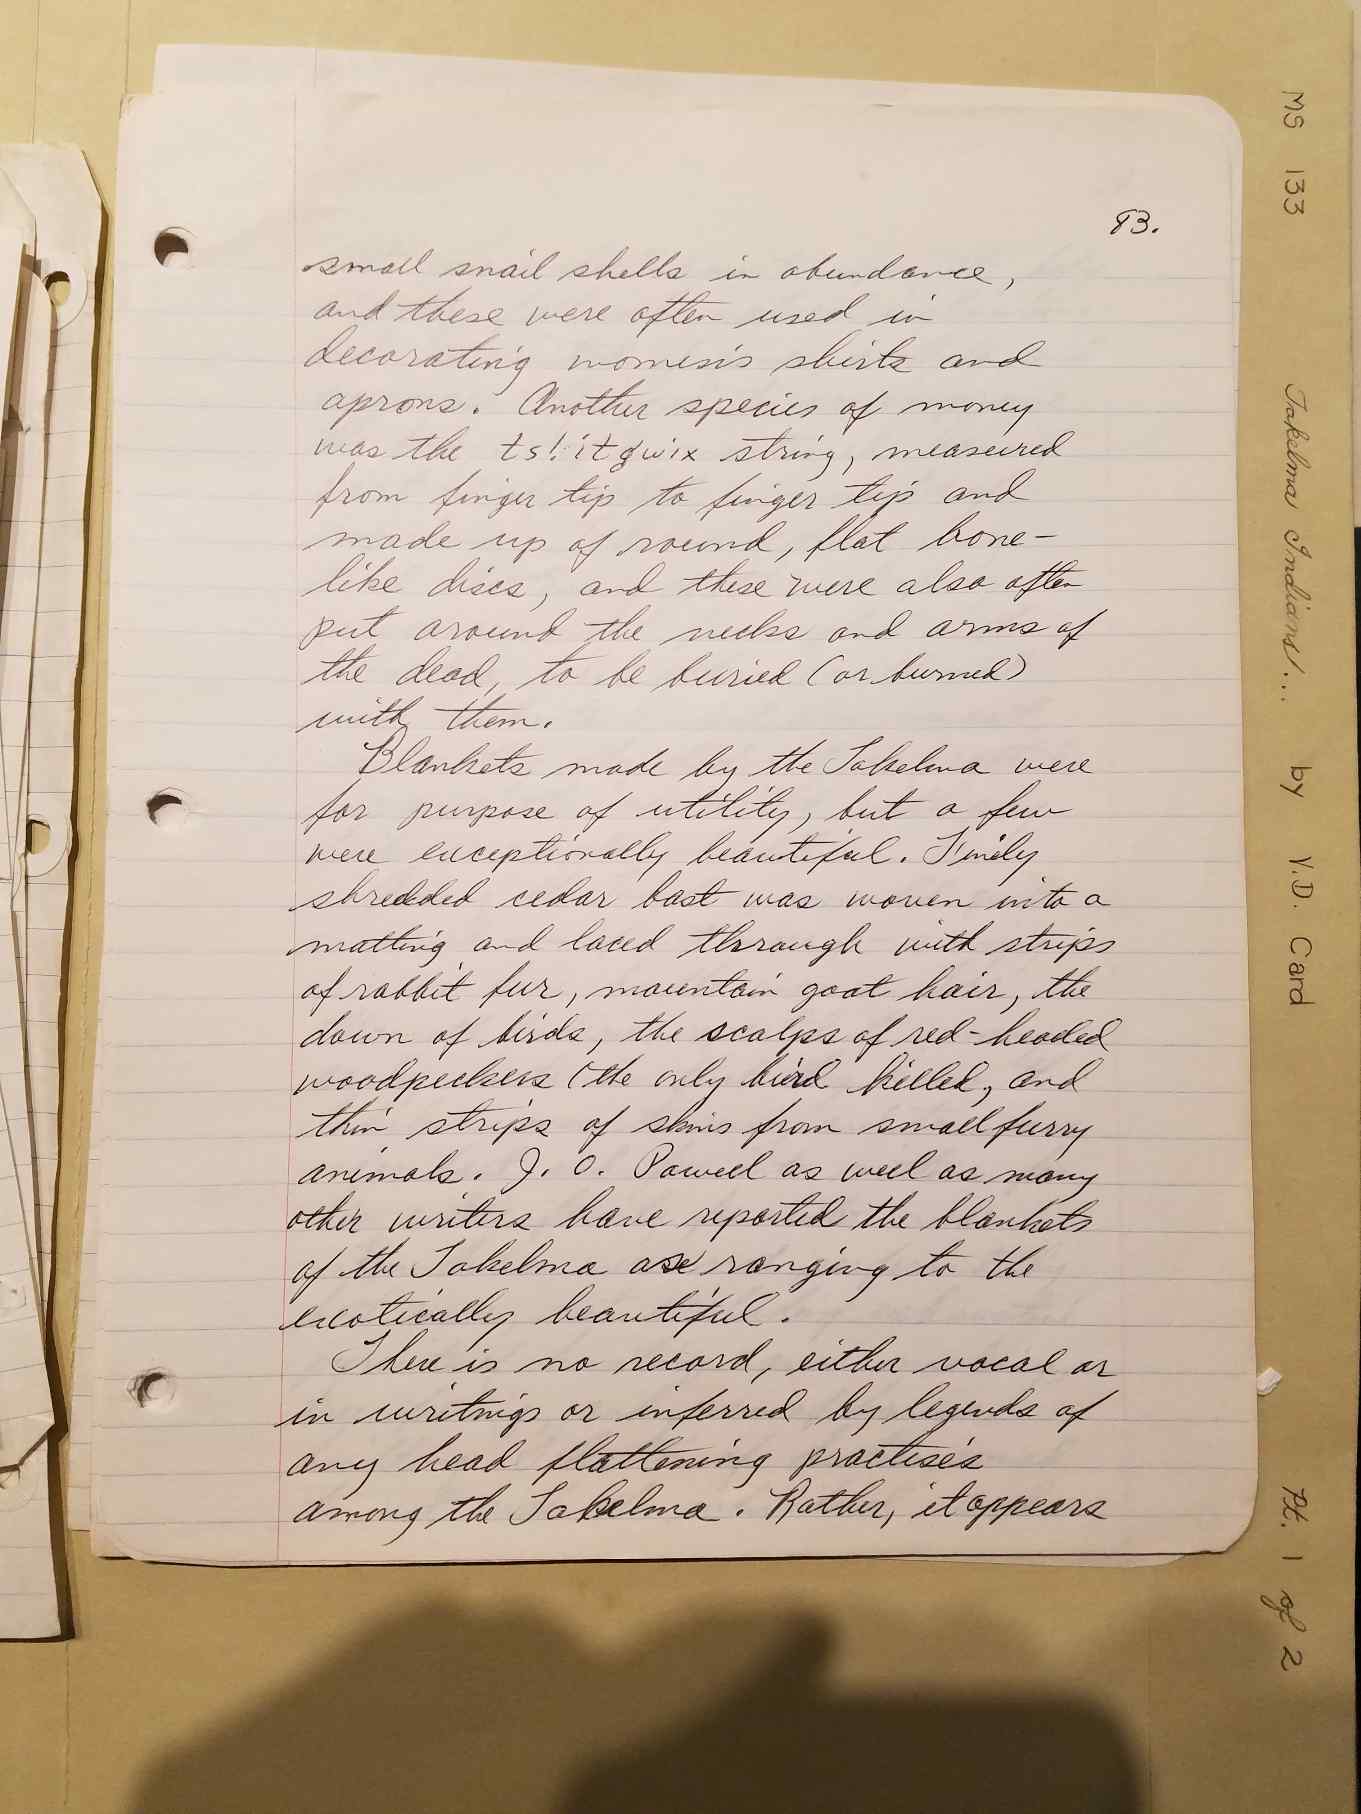 83.
small snail shells in abundance,
and these were often used in
decorating women's skirts and
aprons. Another species of money
was the ts!itgwix string, measured
from finger tip to finger tip and
made up of round, flat bone-
like discs, and these were also often
put around the necks and arms of
the dead, to be buried (or burned)
with them.
Blankets made by the Takelma were
for purpose of utility, but a few
were exceptionally beautiful. Finely
shredded cedar bast was woven into a
matting and laced through with strips
of rabbit fur, mountain goat hair, the
down of birds, the scalps of red-headed
woodpeckers (the only bird killed, and
thin strips of skins from small furry
animals. J. O. Powell as well as many
other writers have reported the blankets
of the Takelma as ranging to the
exotically beautiful.
There is no record, either vocal or
in writings or inferred by legends of
any head flattening practises
among the Takelma. Rather, it appears
MS 133 Takelma Indians... by V.D. Card Pt. 1 of 2